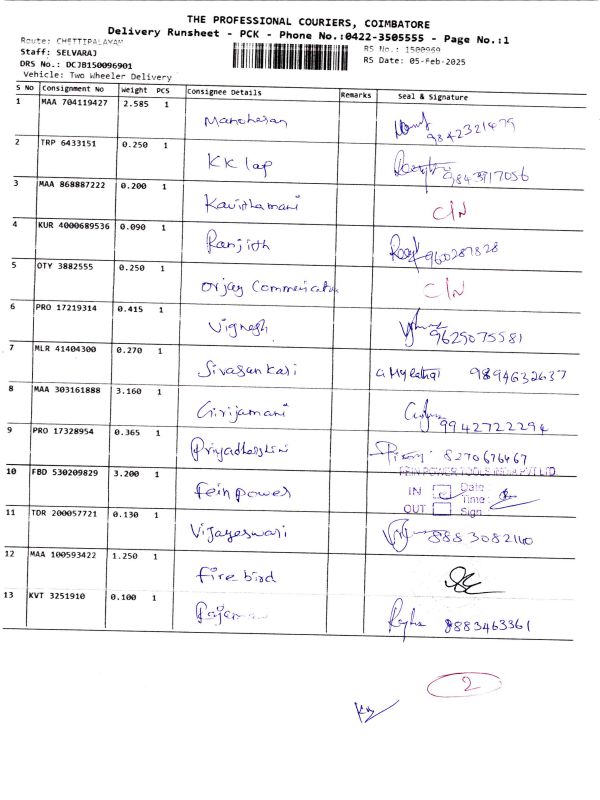 THE PROFESSIONAL COURIERS, COIMBATORE
Delivery Runsheet - PCK - Phone No.:0422-3505555 - Page No.:1
Route: CHETTIPALAYAM
RS No.: 1500969
Staff: SELVARAJ
RS Date: 05-Feb-2025
DRS No.: DCJB150096901
Vehicle: Two Wheeler Delivery
S No Consignment No Weight PCS Consignee Details Remarks Seal & Signature
1 MAA 704119427 2.585 1 Manoharan 9842321479
2 TRP 6433151 0.250 1 KK lap 9843917056
3 MAA 868887222 0.200 1 Kavithamani C/N
4 KUR 4000689536 0.090 1 Ranjith 960287828
5 OTY 3882555 0.250 1 C/N
6 PRO 17219314 0.415 1 Vignesh 9629075581
7 MLR 41404300 0.270 1 Sivasankari 9894632637
8 MAA 303161888 3.160 1 Girijamani 9942722294
9 PRO 17328954 0.365 1 Priyadharshini 8270676467
FEIN POWER TOOLS INDIA PVT LTD
10 FBD 530209829 3.200 1 fein power IN Date
Time:
OUT Sign
11 TDR 200057721 0.130 1 Vijayeswari 8883082140
12 MAA 100593422 1.250 1 fire bird
13 KVT 3251910 0.100 1 8883463361
2